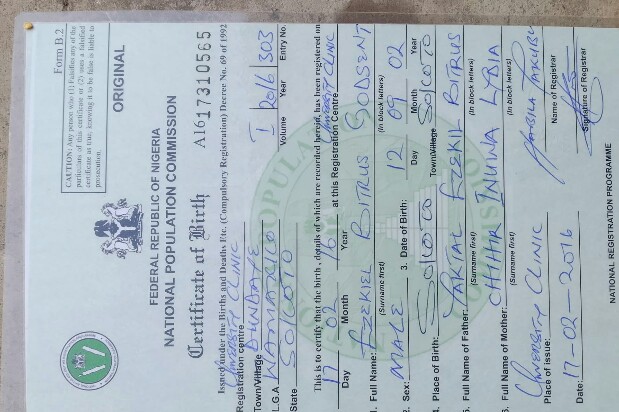 Form B.2
CAUTION: Any person who (1) Falsifies any of the
particulars of this certificate or (2) uses a falsified
certificate as true, knowing it to be false is liable to
prosecution.
ORIGINAL
FEDERAL REPUBLIC OF NIGERIA
NATIONAL POPULATION COMMISSION
Certificate of Birth
A16 17310565
Issued under the Births and Deaths Etc. (Compulsory Registration) Decree No. 69 of 1992
UNIVERSITY CLINIC
Registration centre
DUNDAYE
I 2016 303
Town/Village
Volume Year Entry No.
WAMAKKO
L.G.A
SOKOTO
State
This is to certify that the birth, details of which are recorded herein, has been registered on
17 02 16 at this Registration Centre UNIVERSITY CLINIC
Day Month Year
1. Full Name: EZEKIEL BITRUS
(Surname first) (In block letters)
2. Sex: MALE 3. Date of Birth: 12 09 02
Day Month Year
4. Place of Birth: SOKOTO Town/Village SOKOTO
5. Full Name of Father: EZEKIL BITRUS
(Surname first) (In block letters)
6. Full Name of Mother: LYBIA
(Surname first) (In block letters)
UNIVERSITY CLINIC
Place of issue: Name of Registrar
Date: 17-02-2016 Signature of Registrar
NATIONAL REGISTRATION PROGRAMME